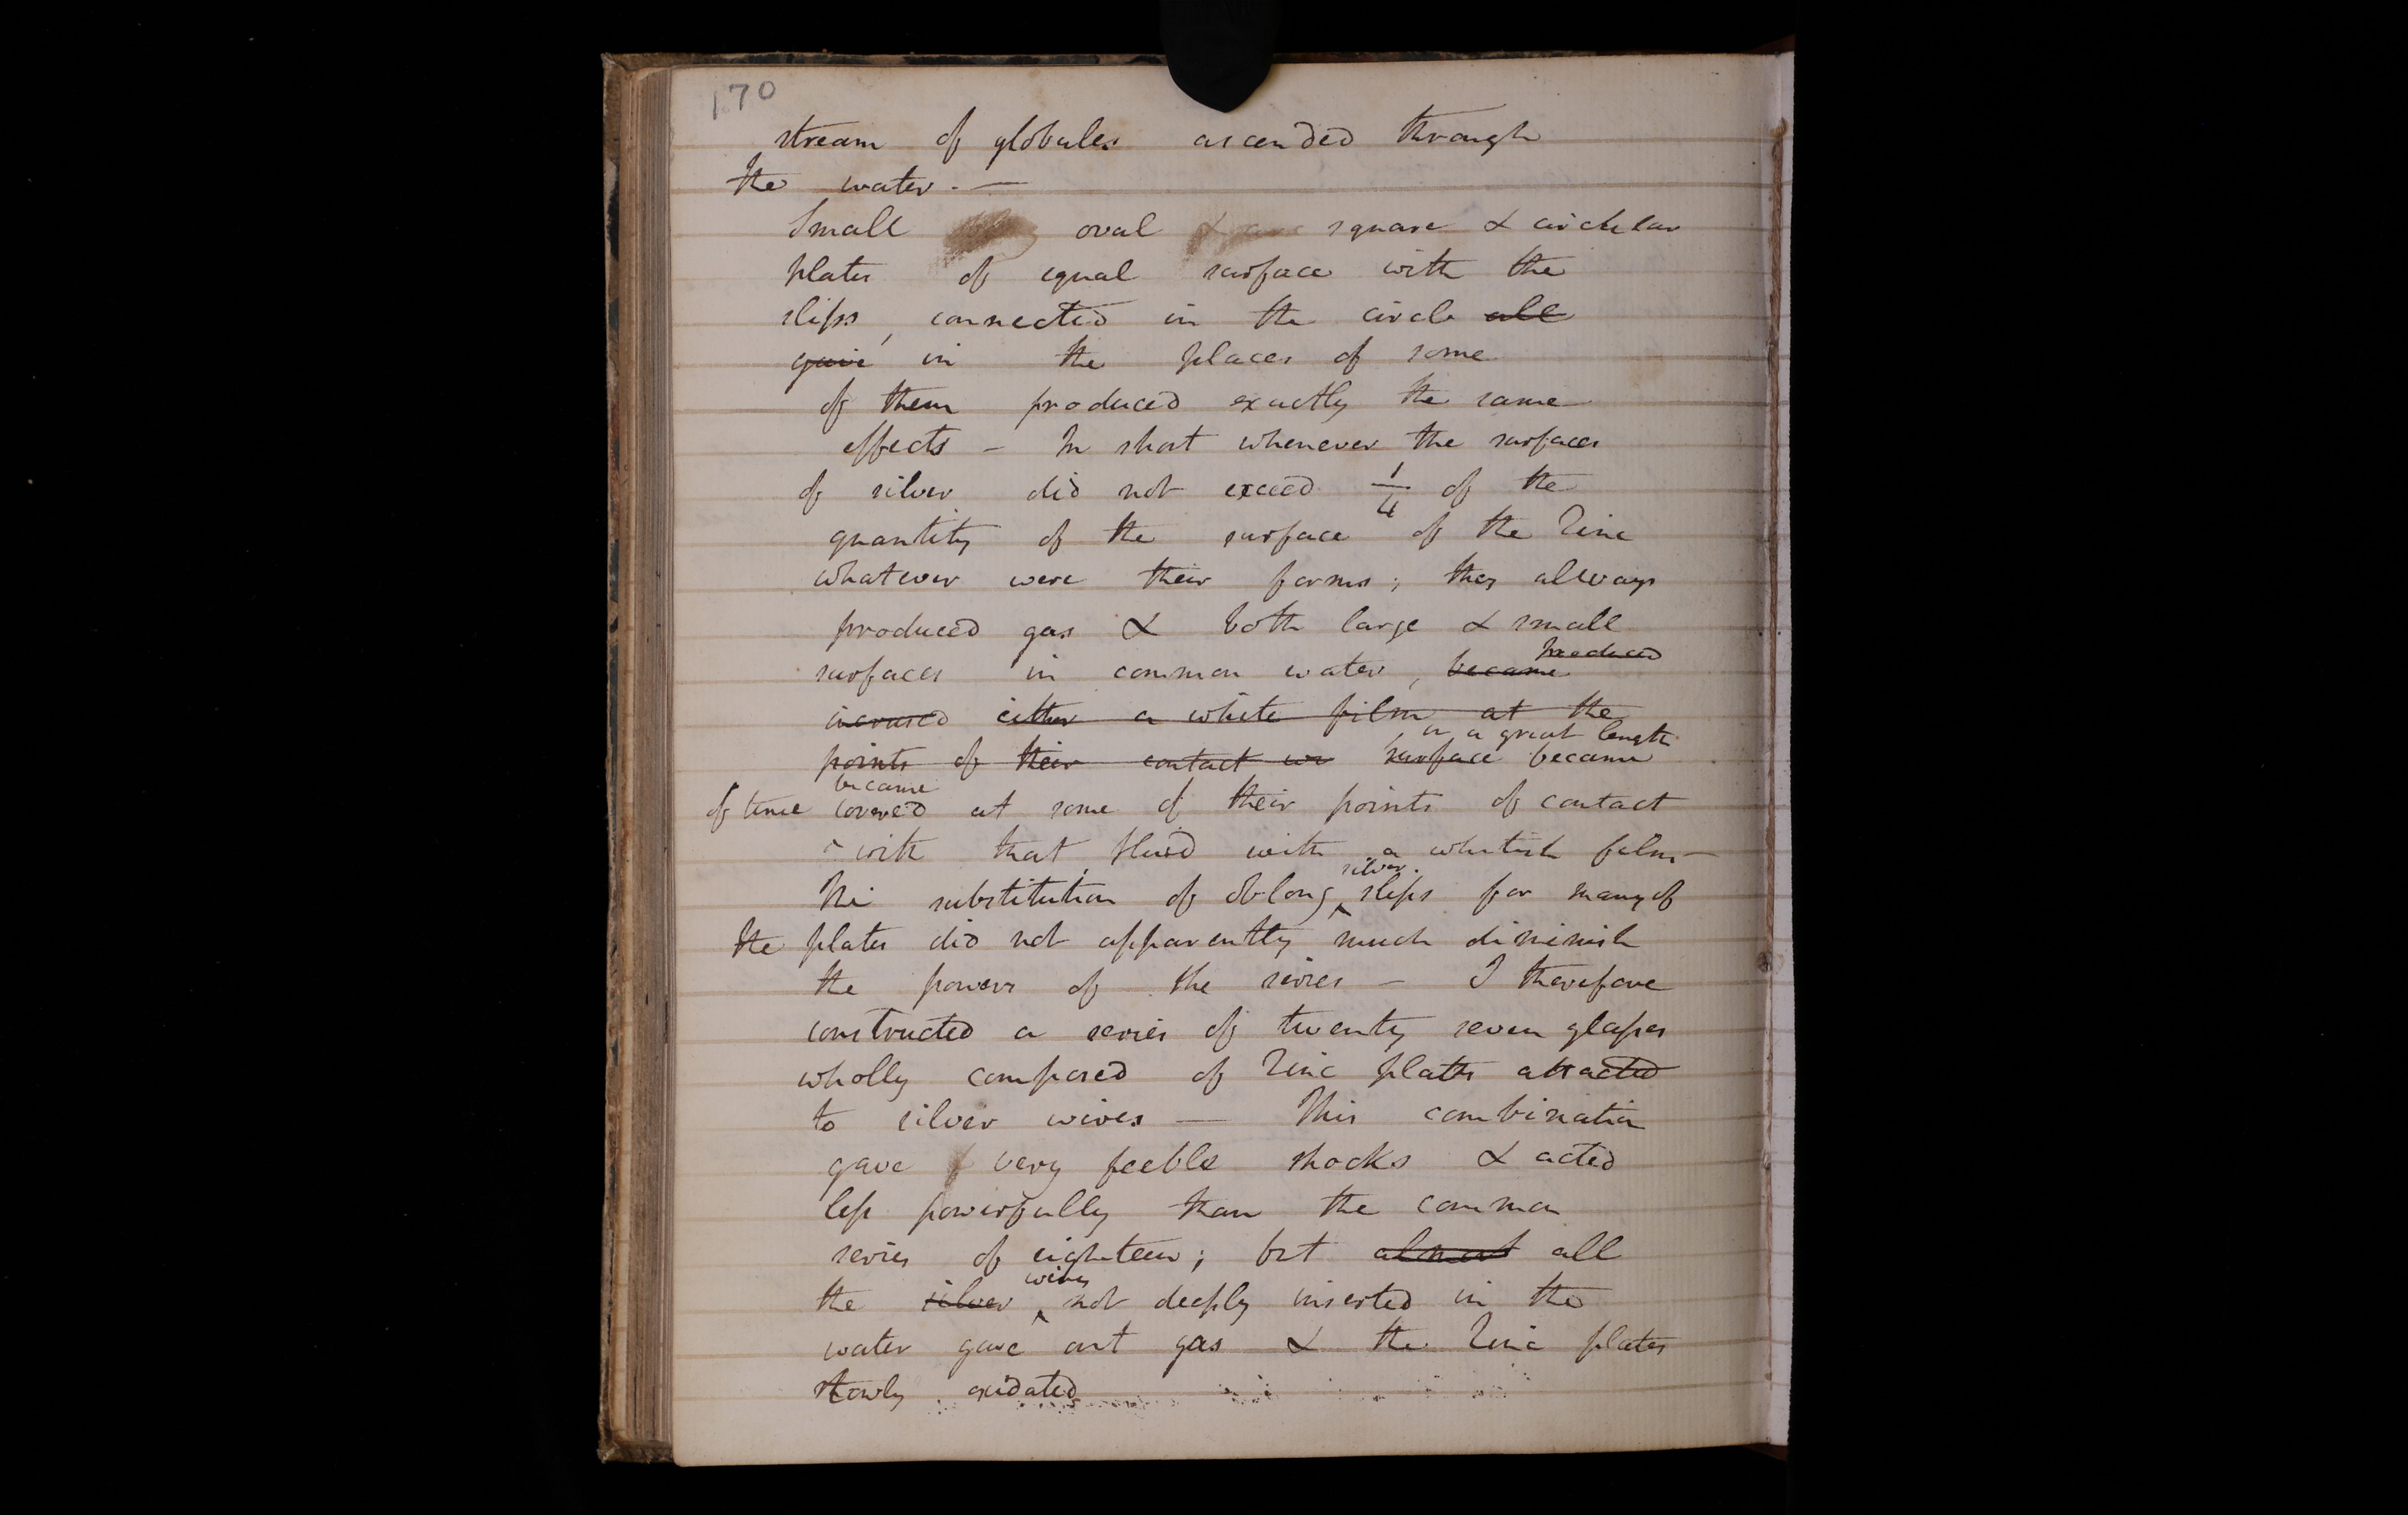 170
stream of globules ascended through
the water. —
Small oval square & circular
plates of equal surface with the
slips, connected in the circle all
gave in the places of some
of them produced exactly the same
effects – In short whenever the surfaces
of silver did not exceed 1/4 of the
quantity of the surface of the Zinc
whatever were their forms; they allways
produced gas & both large & small
produced
surfaces in common water, became
either a white film at the
in a great length
points of their contact or surface became
became
of time covered at some of their points of contact
with that fluid with a whitish film –
silver
The substitution of oblong ^ slips for many of
the plates did not apparently much diminish
the powers of the series – I therefore
constructed a series of twenty seven glasses
wholly composed of Zinc plates attracted
to silver wires — This combination
gave very feeble shocks & acted
less powerfully than the common
series of eighteen; but almost all
wires
the silver ^ not deeply inserted in the
water gave out gas & the Zinc plates
slowly oxidated